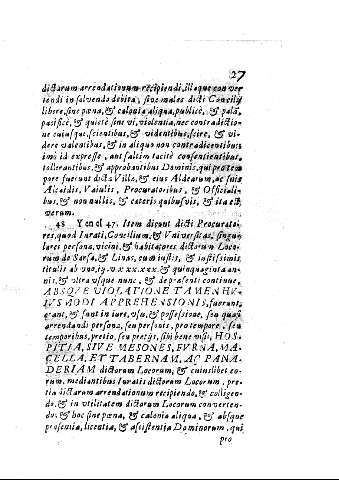 27
dictarum arrendationum recipiendi, illaque conver
tendi in salvendo devita, sive males dicti Concilij
libere, sine pœna, & calonia aliqua, publicè, & palã,
pasificè, & quietè sine vi, violentia, nec contradictio-
ne cuiusque, scientibus, & videntibus, scire, & vi-
dere valentibus, & in aliquo non contradicentibus
imò id expresse, aut saltim tacitè consentientibus,
tollerantibus, & approbantibus Dominis, qui pro tem
pore fuerunt dictæ Villæ, & eius Aldearum, ac suis
Alcaidis, Vaiulis, Procuratoribus, & Officiali-
bus, & non nullis, & cateris quibusvis, & ita est
verum.
48 Y en el 47. Item dicunt dicti Procurato-
res, quod Iurati, Concilium, & Vniversitas, singu
lares persona, vicini, & habitatores dictorum Loco-
rum de Sarsa, & Linas, cum iustis, & iustissimis
titulis ab uno, ij. v x x x x x x. & quinquaginta an-
nis, & ultra usque nunc, & de præsenti continue,
ABSQUE VIOLATIONE TAMEN HV-
IVSMODI APPREHENSIONIS, fuerunt,
erant, & sunt in iure, usu, & possessione, seu quasi
arrendandi persona, seu personis, pro tempore, seu
temporibus, pretio, seu pretijs, sibi bene visis, HOS-
PITIA, SIVE MESONES, FVRNA, MA-
CELLA, ET TABERNAM, AC PANA-
DERIAM dictorum Locorum, & cuiuslibet eo-
rum, mediantibus Iuratis dictorum Locorum, pre-
tia dictarum arrendationum recipiendo, & colligen-
do, & in utilitatem dictorum Locorum converten-
do, & hoc sine pœna, & calonia aliqua, & absque
præsentia, licentia, & assistentia Dominorum, qui
pro